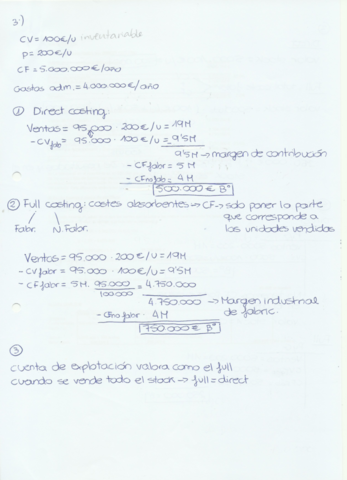 3)
CV = 100€/u inventariable
p = 200€/u
CF = 5.000.000€/año
Gastos adm. = 4000.000€/año
① Direct costing:
Ventas = 95.000 · 200€/u = 19M
- CVfab = 95.000 · 100€/u = - 9'5M
9'5M → margen de contribución
- CFfabr = 5M
- CFnofab = 4M
500.000 € Bº
② Full costing: costes absorbentes → CF → solo poner la parte
que corresponde a
las unidades vendidas
Fabr. N.Fabr.
Ventas = 95.000 · 200€/u = 19M
- CVfabr = 95.000 · 100€/u = 9'5M
- CFfabr = 5M · 95.000/100.000 = 4.750.000
4.750.000 → Margen industrial
de fabric.
- Cfnofabr - 4M
750.000 € Bº
③
cuenta de explotación valora como el full
cuando se vende todo el stock → full = direct